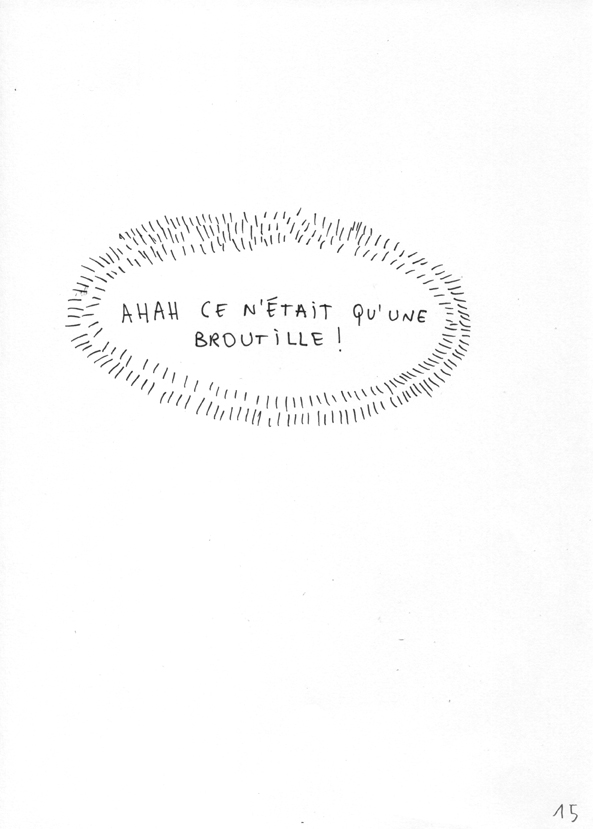 AHAH CE N'ÉTAIT QU'UNE
BROUTILLE !
15